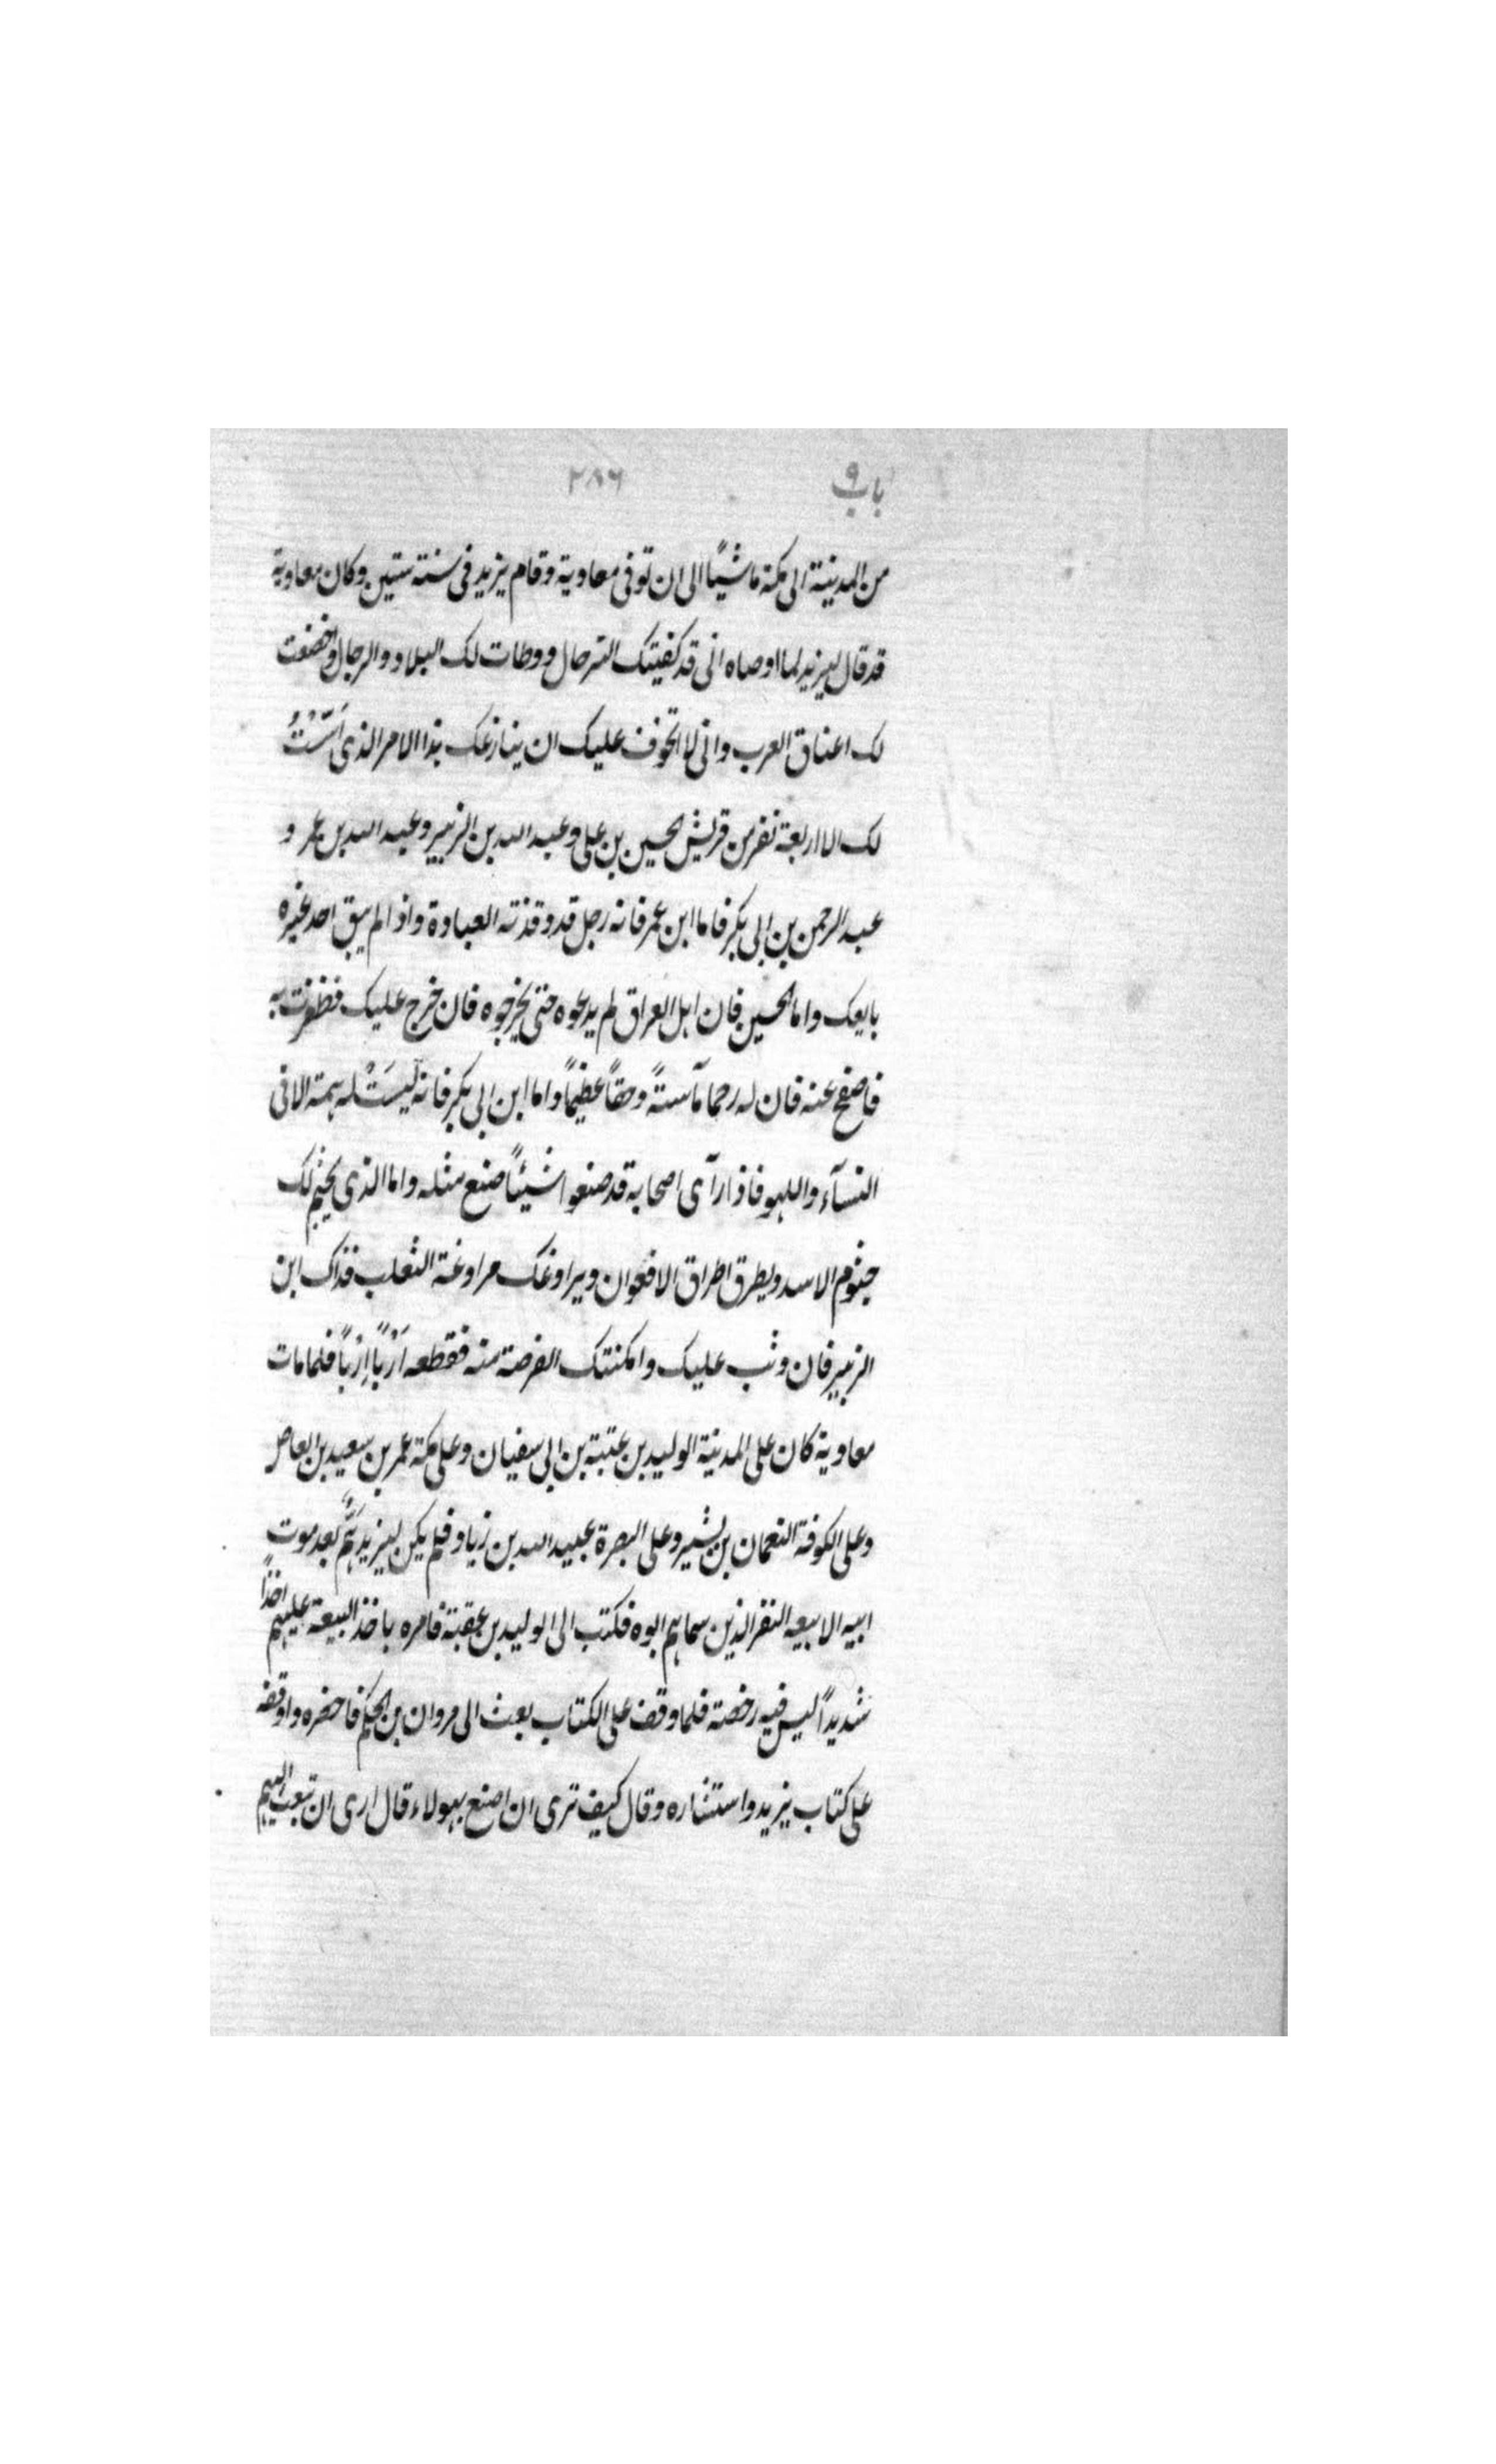 باب ٩ ٢٨٦
من المدينة الى مكة ماشيًا الى ان توفى معاوية وقام يزيد فى سنته ستين وكان معاوية
قد قال ليزيد لما اوصاه انى قد كفيتك الترحال ووطات لك البلاد والرجال واخضعت
لك اعناق العرب وانى لا اتخوف عليك ان ينازعك هذا الامر الذى اسّسْتُ
لك الا اربعة نفر من قريش الحسين بن على وعبد الله بن الزبير وعبد الله بن عمر و
عبد الرحمن بن ابى بكر فاما ابن عمر فانه رجل قد وقذته العبادة واذا لم يبق احد غيره
بايعك واما الحسين فان اهل العراق لم يدعوه حتى يخرجوه فان خرج عليك فظفرت به
فاصفح عنه فان له رحما مآسةً وحقاً عظيماً واما ابن ابى بكر فانه ليسَتْ له همة الا فى
النسآء واللهو فاذا رآى اصحابه قد صنعوا شيئاً صنع مثله واما الذى يجثم لك
جثوم الاسد ويطرق اطراق الافعوان ويراوغك مراوغة الثعلب فذاك ابن
الزبير فان وثب عليك وامكنتك الفرصة منه فقطعه اَرْباً اِرْباً فلما مات
معاوية كان على المدينة الوليد بن عتبة بن ابى سفيان وعلى مكة عمر بن سعيد بن العاص
وعلى الكوفة النعمان بن بشير وعلى البصرة عبيد الله بن زياد فلم يكن ليزيد هَمٌّ بعد موت
ابيه الا بيعه النفر الذين سماهم ابوه فكتب الى الوليد بن عقبة فامره باخذ البيعة عليهم اخذاً
شديداً ليس فيه رخصة فلما وقف على الكتاب بعث الى مروان بن الحكم فاحضره واوقفه
على كتاب يزيد واستشاره وقال كيف ترى ان اصنع بهولاء قال ارى ان تبعث اليهم